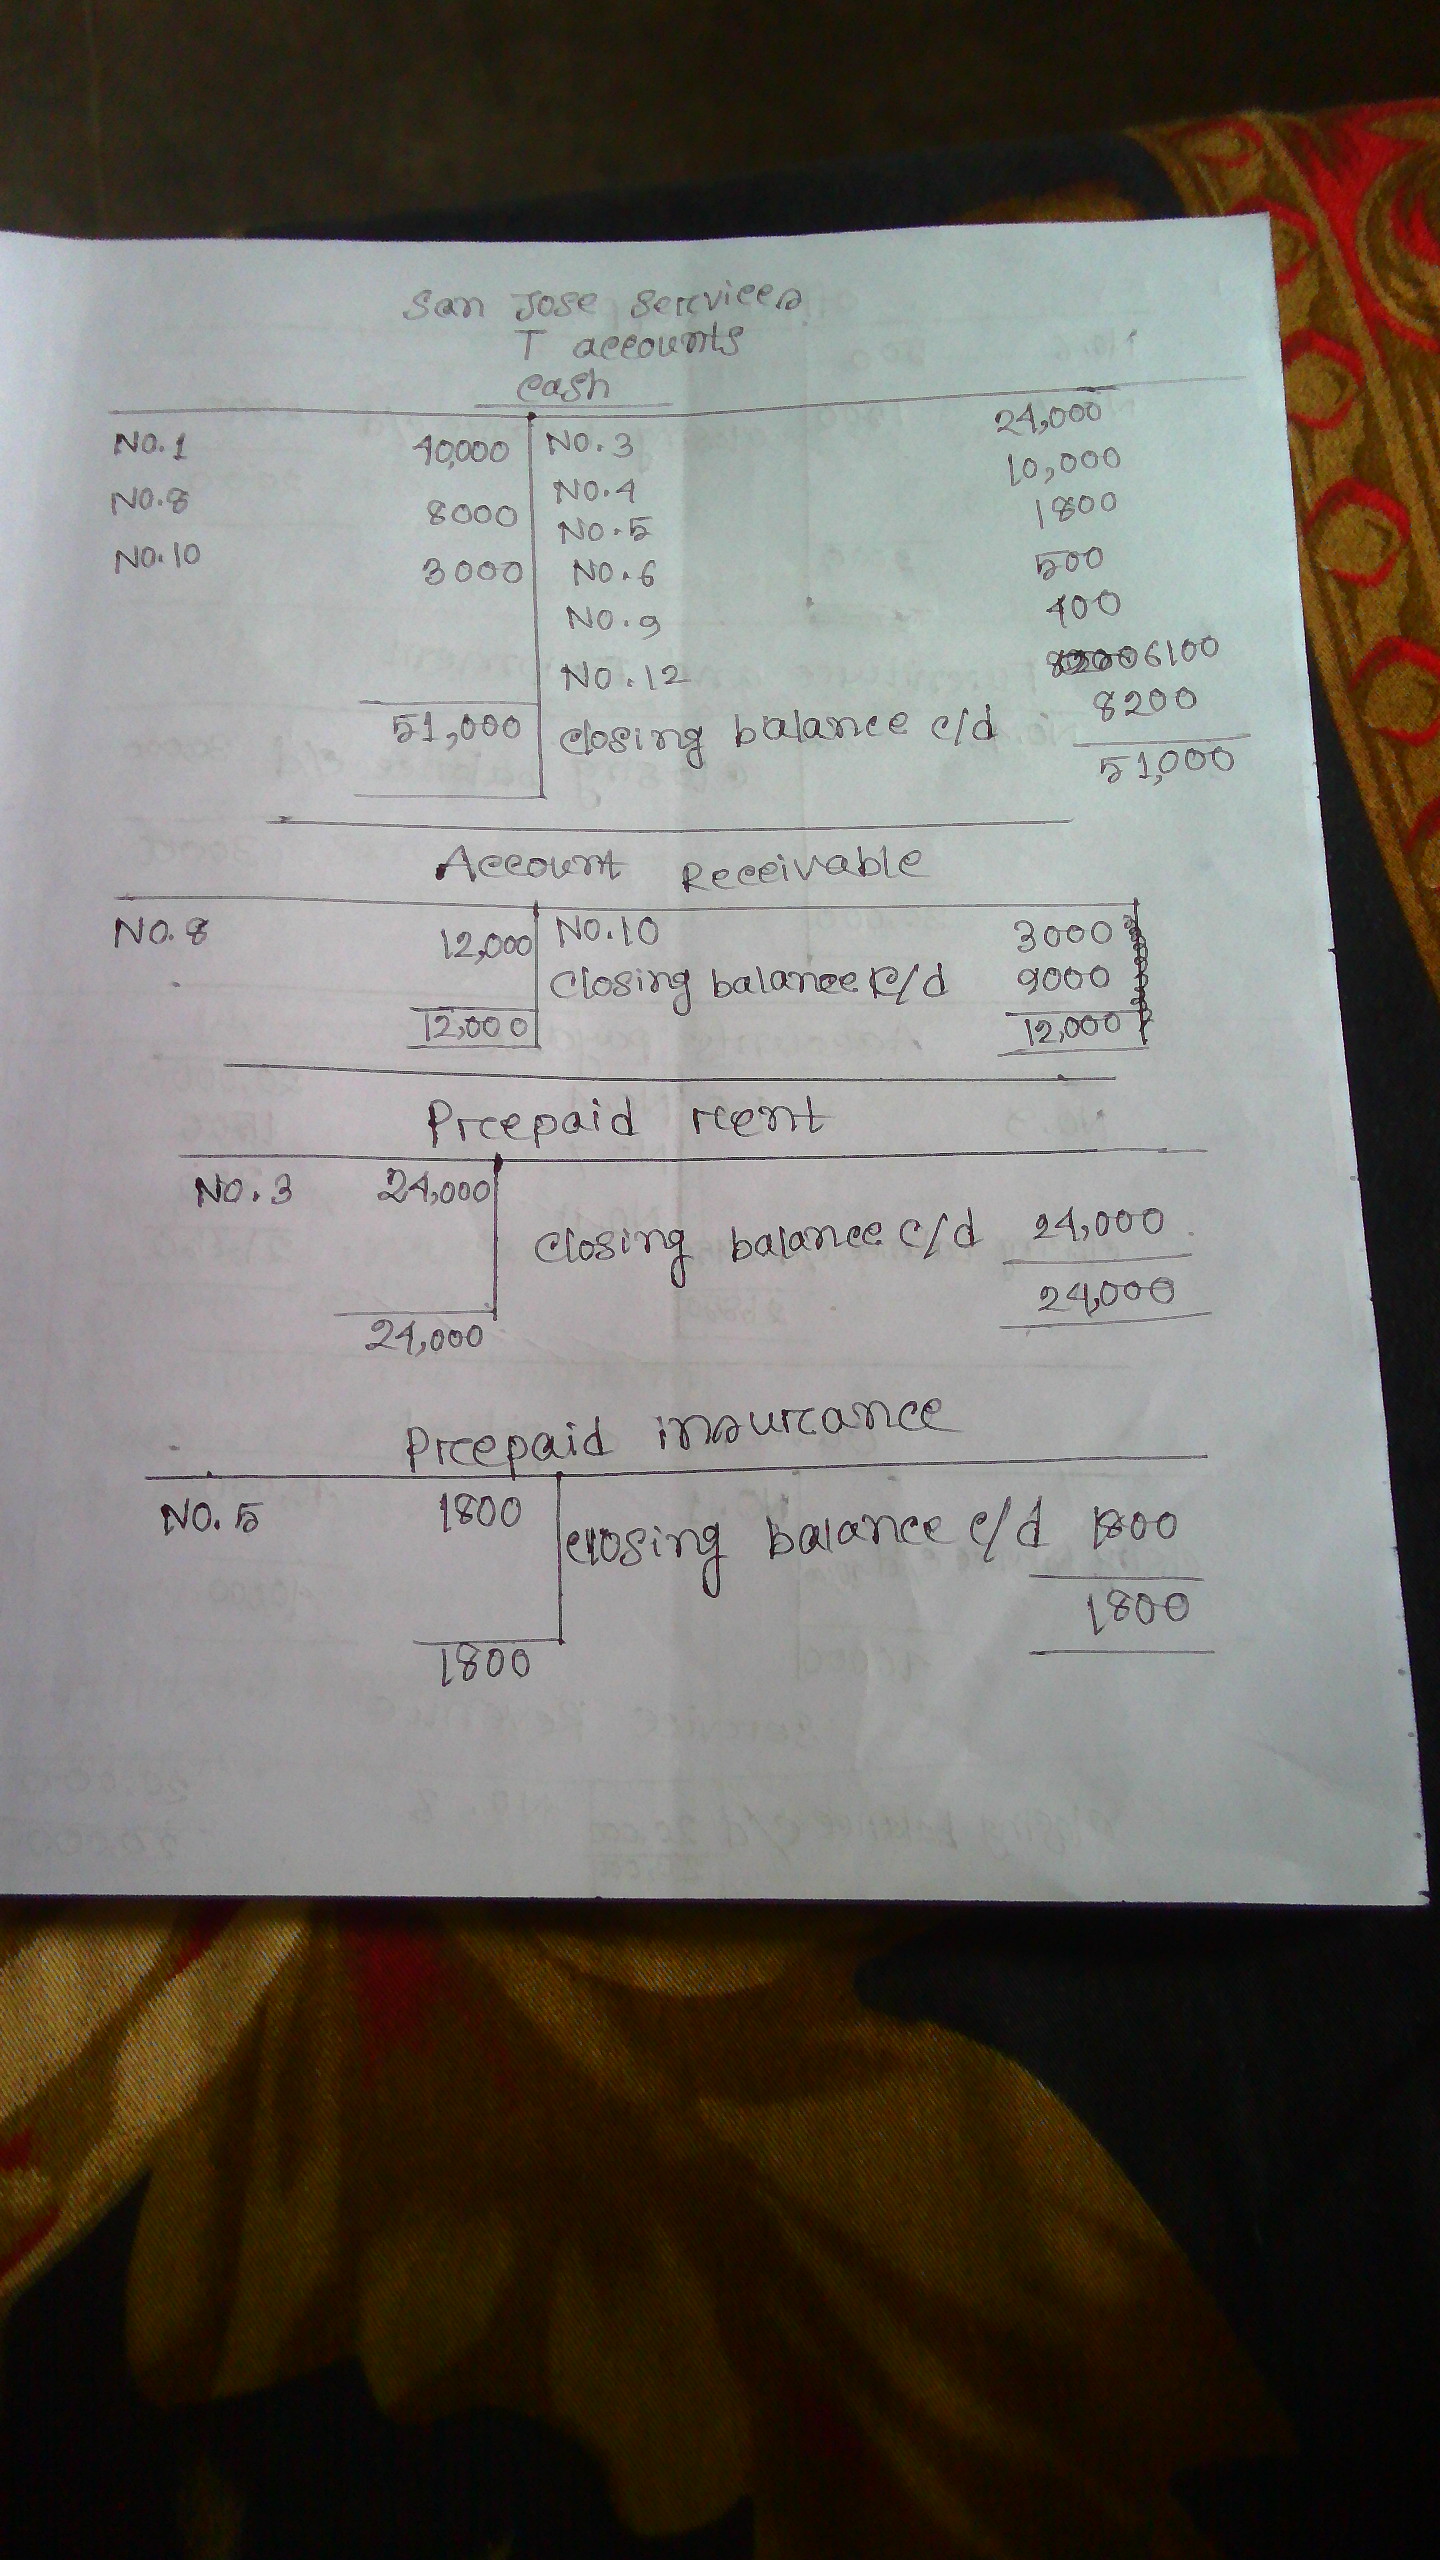 San Jose Services
T accounts
Cash
No.1 40,000 No.3 24,000
No.8 8000 No.4 10,000
No.10 3000 No.5 1800
No.6 500
No.9 400
No.12 6100
51,000 closing balance c/d 8200
51,000
Account Receivable
No.8 12,000 No.10 3000
Closing balance c/d 9000
12,000 12,000
Prepaid rent
No.3 24,000
closing balance c/d 24,000
24,000 24,000
Prepaid insurance
No.5 1800 closing balance c/d 1800
1800 1800